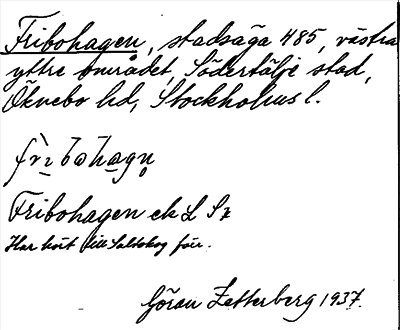 Fribohagen, stadsäga 485, västra
yttre området, Södertälje stad,
Öknebo hd, Stockholms l.
Fribohagen ek L Sz
Har hört till Saltskog förr.
Göran Zetterberg 1937.